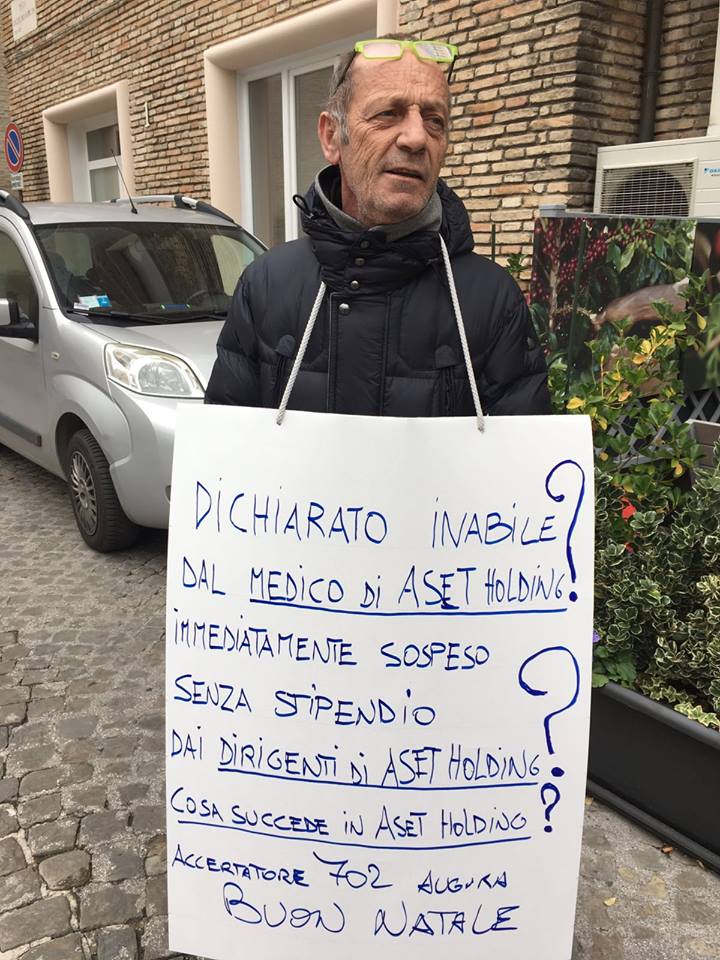 DICHIARATO INABILE?
DAL MEDICO DI ASET HOLDING
IMMEDIATAMENTE SOSPESO
SENZA STIPENDIO
DAI DIRIGENTI DI ASET HOLDING?
COSA SUCCEDE IN ASET HOLDING?
ACCERTATORE 702 AUGURA
BUON NATALE